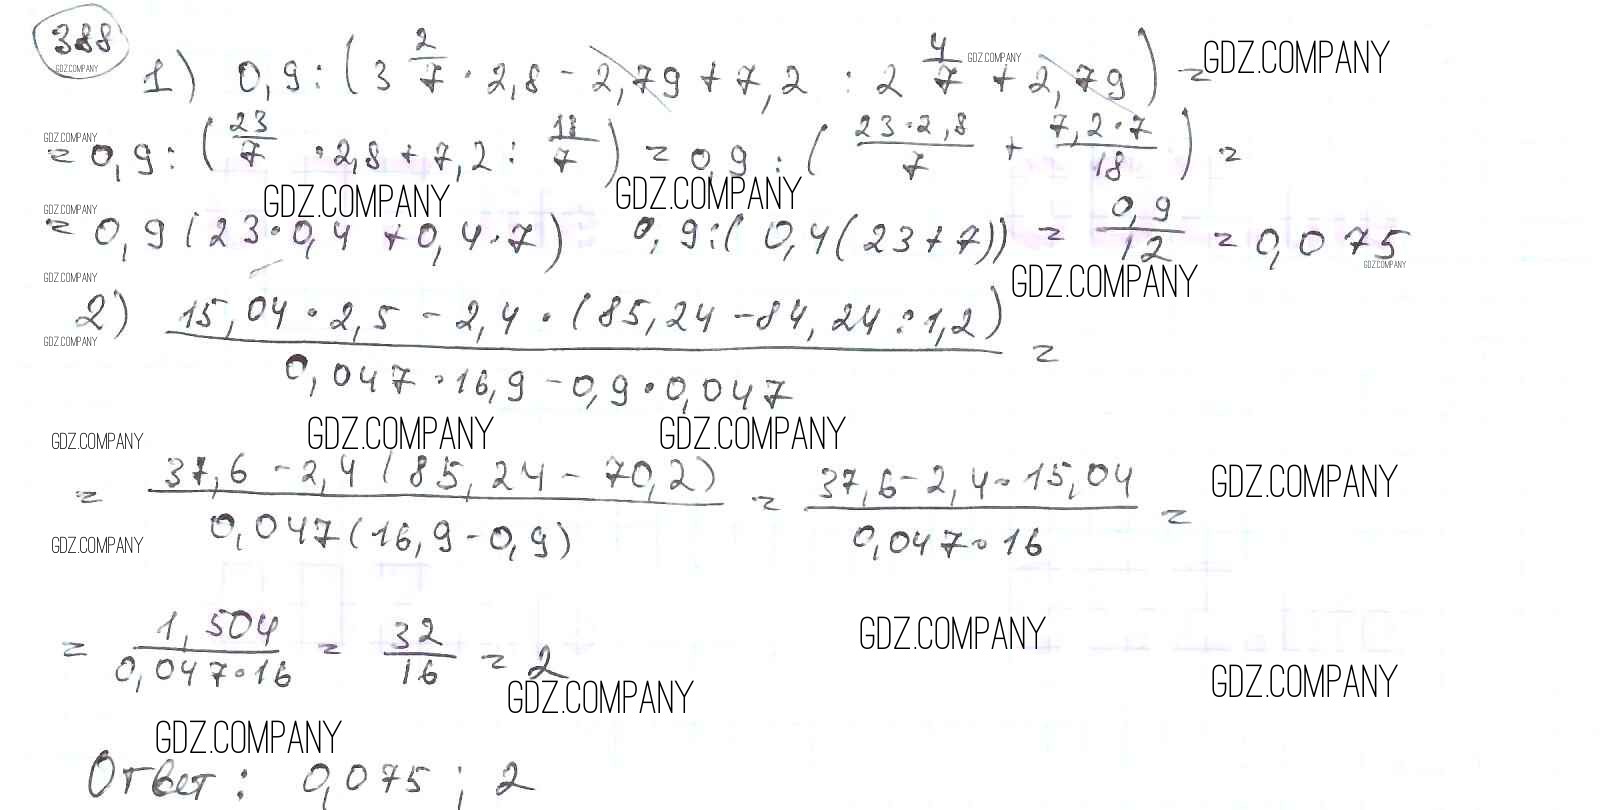 388
GDZ.COMPANY
1) 0,9 : (3 2/7 · 2,8 - 2,79 + 7,2 : 2 4/7 + 2,79) = GDZ.COMPANY GDZ.COMPANY
GDZ.COMPANY
= 0,9 : (23/7 · 2,8 + 7,2 : 18/7) = 0,9 : (23·2,8/7 + 7,2·7/18) =
GDZ.COMPANY GDZ.COMPANY
GDZ.COMPANY
= 0,9 (23·0,4 + 0,4·7) 0,9:(0,4(23+7)) = 0,9/12 = 0,075
GDZ.COMPANY
GDZ.COMPANY GDZ.COMPANY
2) 15,04 · 2,5 - 2,4 · (85,24 - 84,24 : 1,2)
GDZ.COMPANY =
0,047 · 16,9 - 0,9 · 0,047
GDZ.COMPANY GDZ.COMPANY GDZ.COMPANY
= 37,6 - 2,4 (85,24 - 70,2) / 0,047 (16,9 - 0,9) = 37,6 - 2,4 · 15,04 / 0,047 · 16 = GDZ.COMPANY
GDZ.COMPANY
= 1,504 / 0,047 · 16 = 32/16 = 2
GDZ.COMPANY
GDZ.COMPANY GDZ.COMPANY
GDZ.COMPANY
Ответ : 0,075 ; 2